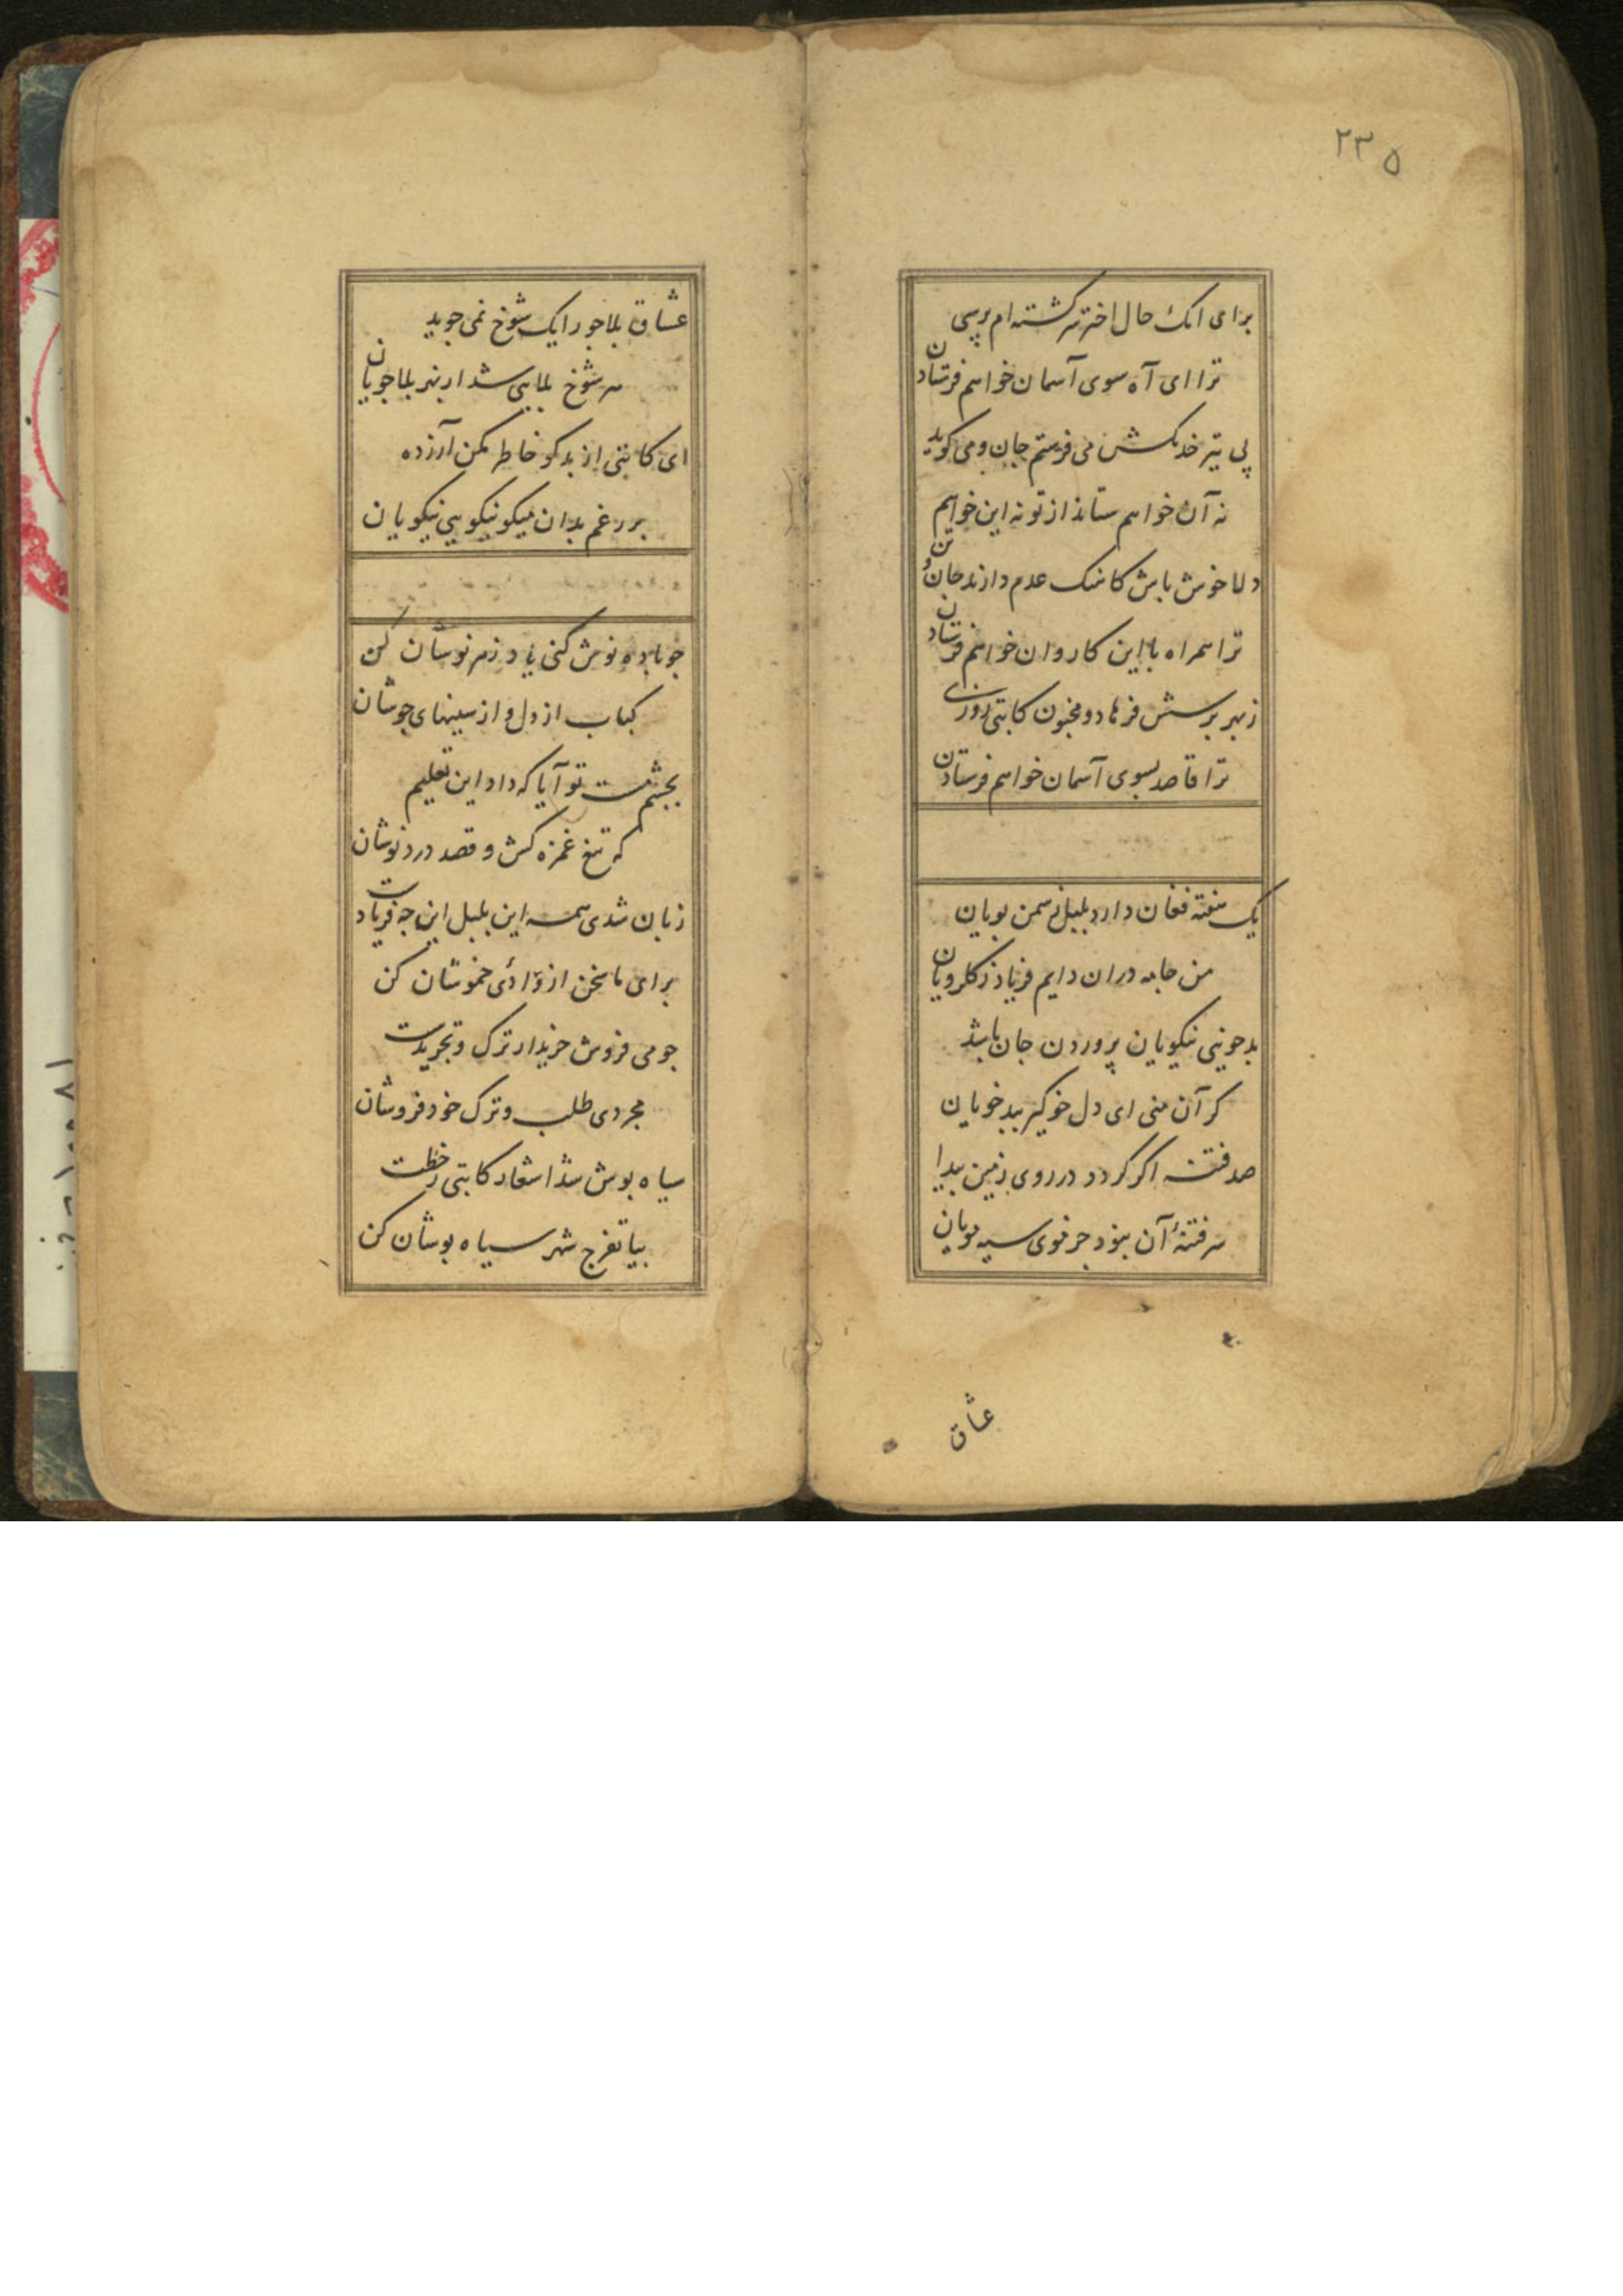 ۲۳۵
برای انک حال اختر سرکشته ام پرسی
ترا ای آه سوی آسمان خواهم فرستادن
پی تیر خدنکش می فرستم جان و می کوید
نه آن خواهم ستاند از تو نه این خواهم
دلا خوش باش کاشک عدم دارند جان و تن
ترا همراه با این کاروان خواهم فرستادن
ز بهر پرسش فرهاد و مجنون کاتبی روزی
ترا قاصد بسوی آسمان خواهم فرستادن
یک هفته فغان دارد بلبل ز سمن بویان
من جامه دران دایم فریاد ز کلرویان
بدخویی نیکویان پروردن جان باشد
کر آن منی ای دل خو کیر ببدخویان
صد فتنه اکر کردد در روی زمین پیدا
سر فتنهٔ آن نبود جز موی سیه مویان
عشاق
عشاق بلاجو را یک شوخ نمی جوید
هر شوخ بلایی شد از بهر بلاجویان
ای کاتبی از بدکو خاطر مکن آزرده
بر رغم بدان میکو نیکویی نیکویان
چو باده نوش کنی یاد زهرنوشان کن
کباب از دل و از سینهای جوشان
بچشم مست تو آیا که داد این تعلیم
که تیغ غمزه کش و قصد دردنوشان
زبان شدی همه ای بلبل این چه فریادست
برای ما سخن از وادی خموشان کن
چو می فروش خریدار ترک و تجریدست
مجردی طلب و ترک خودفروشان
سیاه پوش شد اشعار کاتبی ز خطت
بیا تفرج شهر سیاه پوشان کن